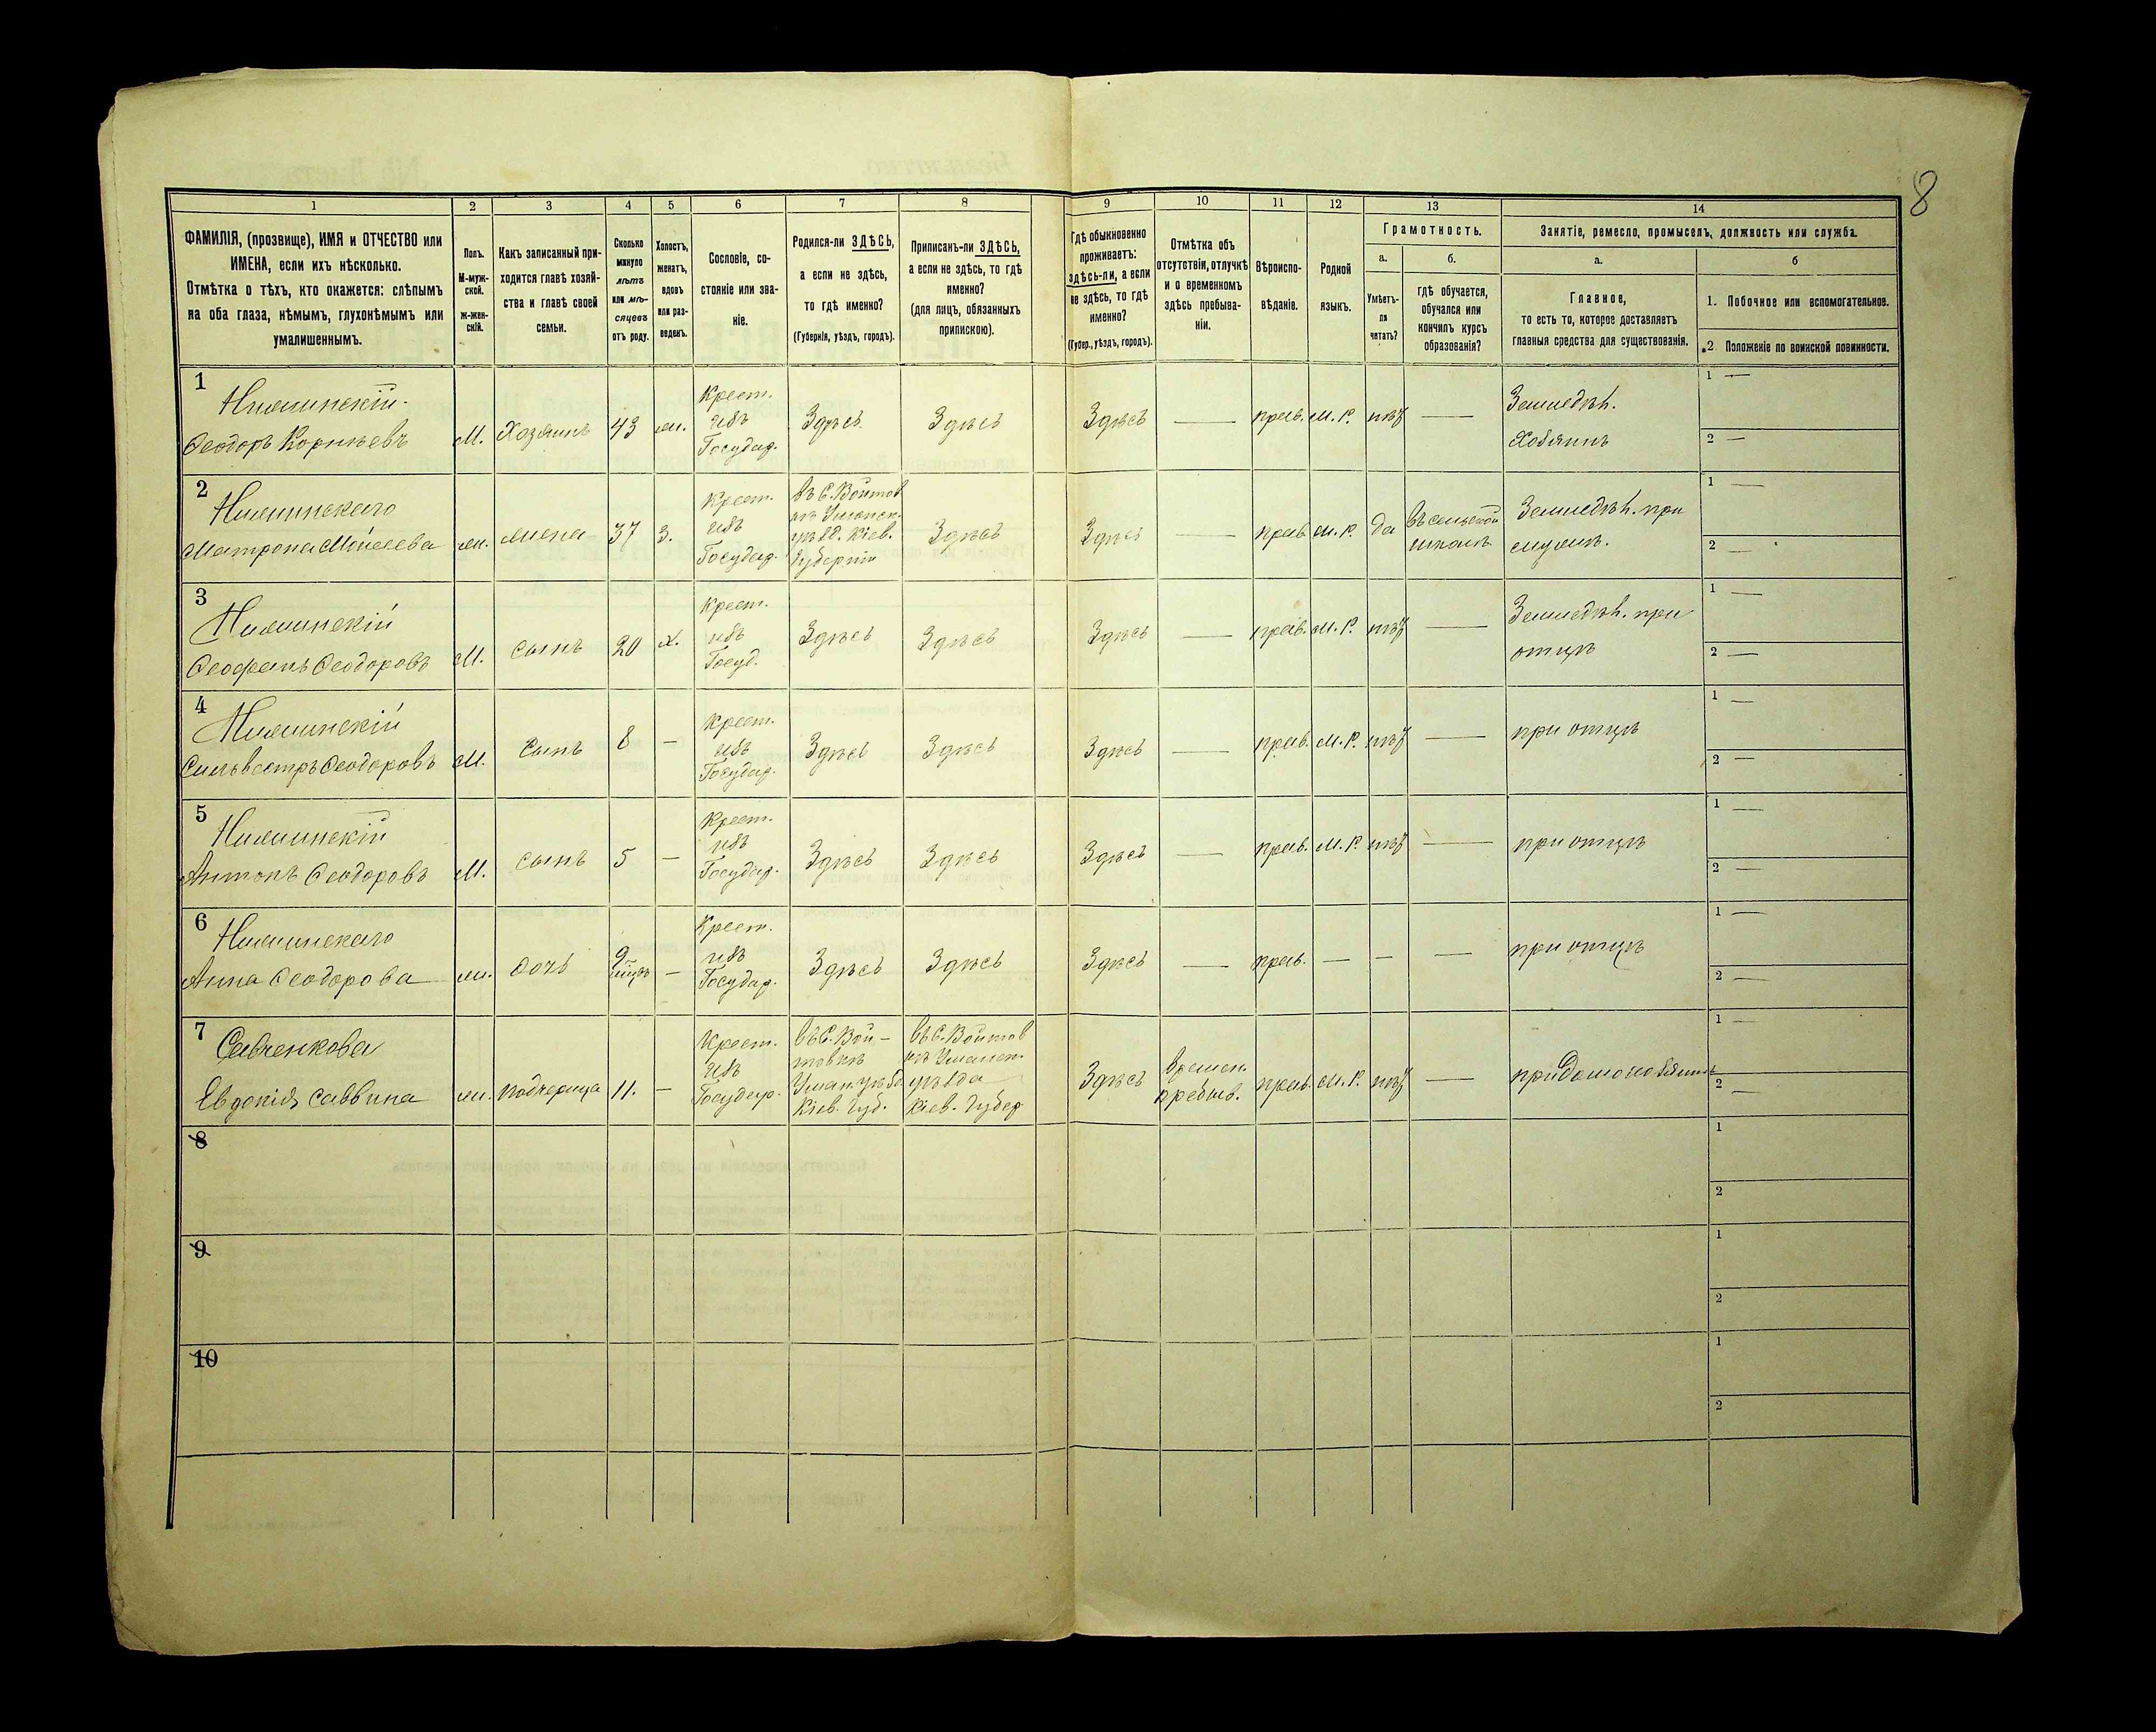 8
1 2 3 4 5 6 7 8 9 10 11 12 13 14
ФАМИЛІЯ, (прозвище), ИМЯ и ОТЧЕСТВО или
ИМЕНА, если ихъ нѣсколько.
Отмѣтка о тѣхъ, кто окажется: слѣпымъ
на оба глаза, нѣмымъ, глухонѣмымъ или
умалишеннымъ.
Полъ.
М-муж-
ской.
ж-жен-
скій.
Какъ записанный при-
ходится главѣ хозяй-
ства и главѣ своей
семьи.
Сколько
минуло
лѣтъ
или мѣ-
сяцевъ
отъ роду.
Холостъ,
женатъ,
вдовъ
или раз-
веденъ.
Сословіе, со-
стояніе или зва-
ніе.
Родился-ли ЗДѢСЬ,
а если не здѣсь,
то гдѣ именно?
(Губернія, уѣздъ, городъ).
Приписанъ-ли ЗДѢСЬ,
а если не здѣсь, то гдѣ
именно?
(для лицъ, обязанныхъ
припискою).
Гдѣ обыкновенно
проживаетъ:
здѣсь-ли, а если
не здѣсь, то гдѣ
именно?
(Губер., уѣздъ, городъ).
Отмѣтка объ
отсутствіи, отлучкѣ
и о временномъ
здѣсь пребыва-
ніи.
Вѣроиспо-
вѣданіе.
Родной
языкъ.
Грамотность.
а.
Умѣетъ-
ли
читать?
б.
гдѣ обучается,
обучался или
кончилъ курсъ
образованія?
Занятіе, ремесло, промыселъ, должность или служба.
а.
Главное,
то есть то, которое доставляетъ
главныя средства для существованія.
б
1. Побочное или вспомогательное.
2. Положеніе по воинской повинности.
1
Ѳеодоръ Корнѣевъ
М.
Хозяинъ
43
ж.
Крест.
изъ
Государ.
Здѣсь
Здѣсь
Здѣсь
—
прав.
М. Р.
нѣт
—
Земледѣл.
Хозяинъ
1 —
2 —
2
Матрона Мойсеева
ж.
жена
37
з.
Крест.
изъ
Государ.
въ С. Войтов
кѣ Уманск.
уѣзд. Кіев.
Губерніи
Здѣсь
Здѣсь
—
прав.
М. Р.
да
въ сельской
школѣ
Земледѣл. при
мужѣ.
1 —
2 —
3
Ѳеофанъ Ѳеодоровъ
М.
сынъ
20
х.
Крест.
изъ
Госуд.
Здѣсь
Здѣсь
Здѣсь
—
прав.
М. Р.
нѣт
—
Земледѣл. при
отцѣ
1 —
2 —
4
Сильвестръ Ѳеодоровъ
М.
Сынъ
8
—
Крест.
изъ
Государ.
Здѣсь
Здѣсь
Здѣсь
—
прав.
М. Р.
нѣт
—
при отцѣ
1 —
2 —
5
Антонъ Ѳеодоровъ
М.
сынъ
5
—
Крест.
изъ
Государ.
Здѣсь
Здѣсь
Здѣсь
—
прав.
М. Р.
нѣт
—
при отцѣ
1 —
2 —
6
Анна Ѳеодорова
ж.
дочь
9
—
Крест.
изъ
Государ.
Здѣсь
Здѣсь
Здѣсь
—
прав.
—
—
—
при отцѣ
1 —
2 —
7
Савченкова
Евдокія Саввина
ж.
падчерица
11.
—
Крест.
изъ
Государ.
въ С. Вой-
товкѣ
Уман. уѣзд
Кіев. Губ.
въ С. Войтов
кѣ Уманск.
уѣзда
Кіев. Губер
Здѣсь
времен.
пребыв.
прав.
М. Р.
нѣт
—
при домохозяинѣ
1 —
2 —
8
1
2
9
1
2
10
1
2